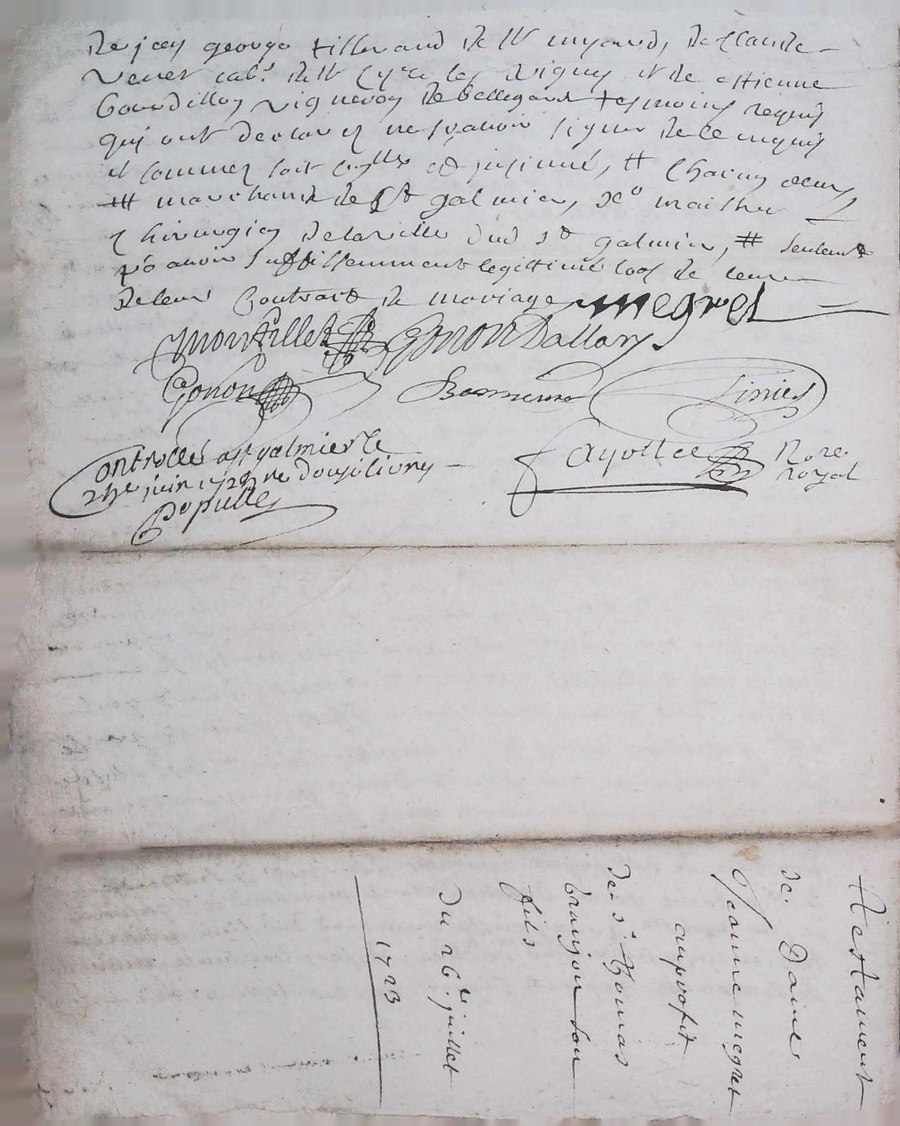 de jean george tillerand de St myard, de Claude
venet cab.r de St Cyr les vignes et de estienne
Gourdillon vigneron de bellegarde tesmoins requis
qui ont declaré ne sçavoir signer de ce enquis
et sommez soit celle cy insinué, # Chacun
# marchand de St galmier, Sr
Chirurgien de la ville dud St galmier, # seulement
po avoir suffisemment legittimé de leur
de leur Contract de mariage megret
montillet Gonon Dallary
Gonon Bonnienne Finies
Controllé a St galmier le
juin 1723 re douze livres
Populle
Cayottee Nore
royal
Testament
de Dame
Jeanne megret
au profit
de sr Thomas
braujon son
fils
Du 26e juillet
1723